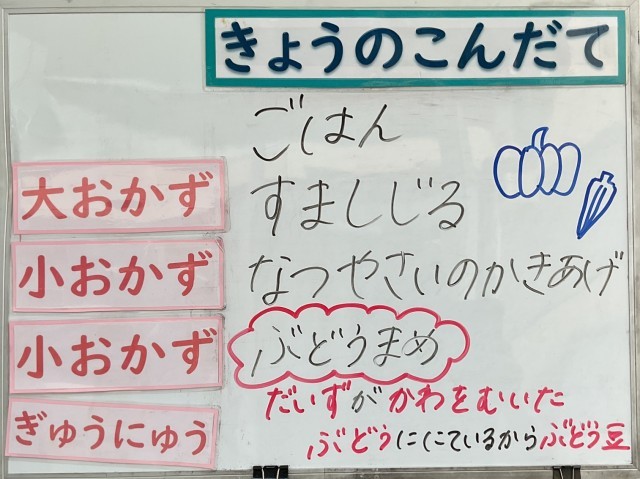 きょうのこんだて
ごはん
大おかず すましじる
小おかず なつやさいのかきあげ
小おかず ぶどうまめ
だいずがかわをむいた
ぎゅうにゅう ぶどうににているからぶどう豆